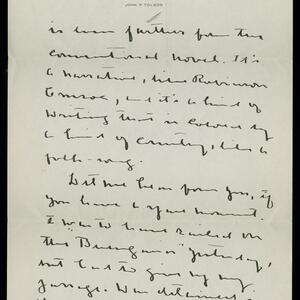 JOHN P. TOLSON
is even further from the
conventional novel. It's
a narrative, like Robinson
Crusoe, and it's a kind of
writing that is colored by
a kind of country, like a
folk-song.
Let me hear from you, if
you have a spare moment.
I was to have sailed on
the "Berengaria" yesterday,
but had to give up my
passage. Was detained